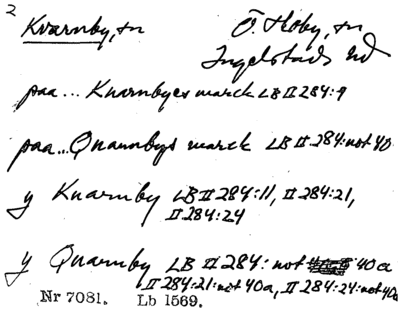 2
Kvarnby, sn Ö. Hoby, sn
Ingelstads hd
paa... Knarnbyes marck LB II 284:9
paa... Quarnnbys marck LB II 284:not 40
y Knarnby LB II 284:11, II 284:21,
II 284:24
y Quarnby LB II 284: not 40a
II 284:21:not 40a, II 284:24:not 40a
Nr 7081. Lb 1569.